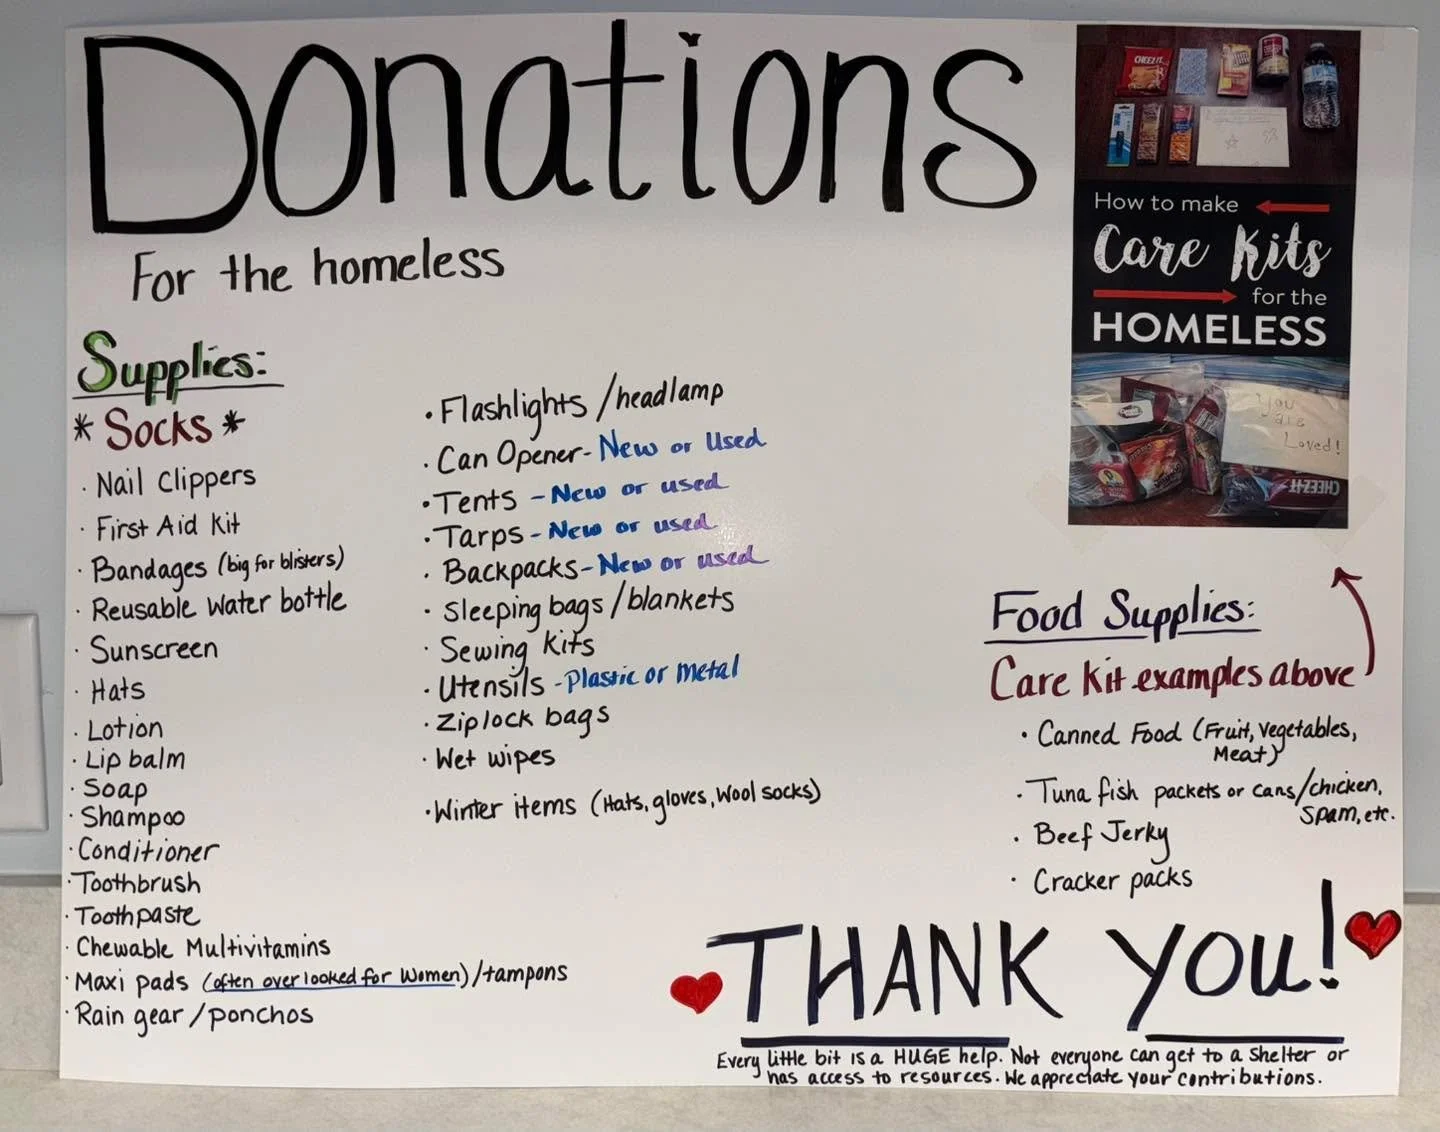 Donations
For the homeless
Supplies:
* Socks *
· Nail Clippers
· First Aid Kit
· Bandages (big for blisters)
· Reusable Water bottle
· Sunscreen
· Hats
· Lotion
· Lip balm
· Soap
· Shampoo
· Conditioner
· Toothbrush
· Toothpaste
· Chewable Multivitamins
· Maxi pads (often overlooked for Women)/tampons
· Rain gear/ponchos
· Flashlights/headlamp
· Can Opener - New or Used
· Tents - New or used
· Tarps - New or used
· Backpacks - New or used
· Sleeping bags/blankets
· Sewing Kits
· Utensils - Plastic or Metal
· Ziplock bags
· Wet wipes
· Winter items (Hats, gloves, Wool socks)
CHEEZ IT
How to make
Care Kits
for the
HOMELESS
You
are
Loved!
CHEEZ-IT
Food Supplies:
Care Kit examples above
· Canned Food (Fruit, Vegetables,
Meat)
· Tuna fish packets or cans/chicken,
Spam, etc.
· Beef Jerky
· Cracker packs
THANK YOU!
Every little bit is a HUGE help. Not everyone can get to a shelter or
has access to resources. We appreciate your contributions.